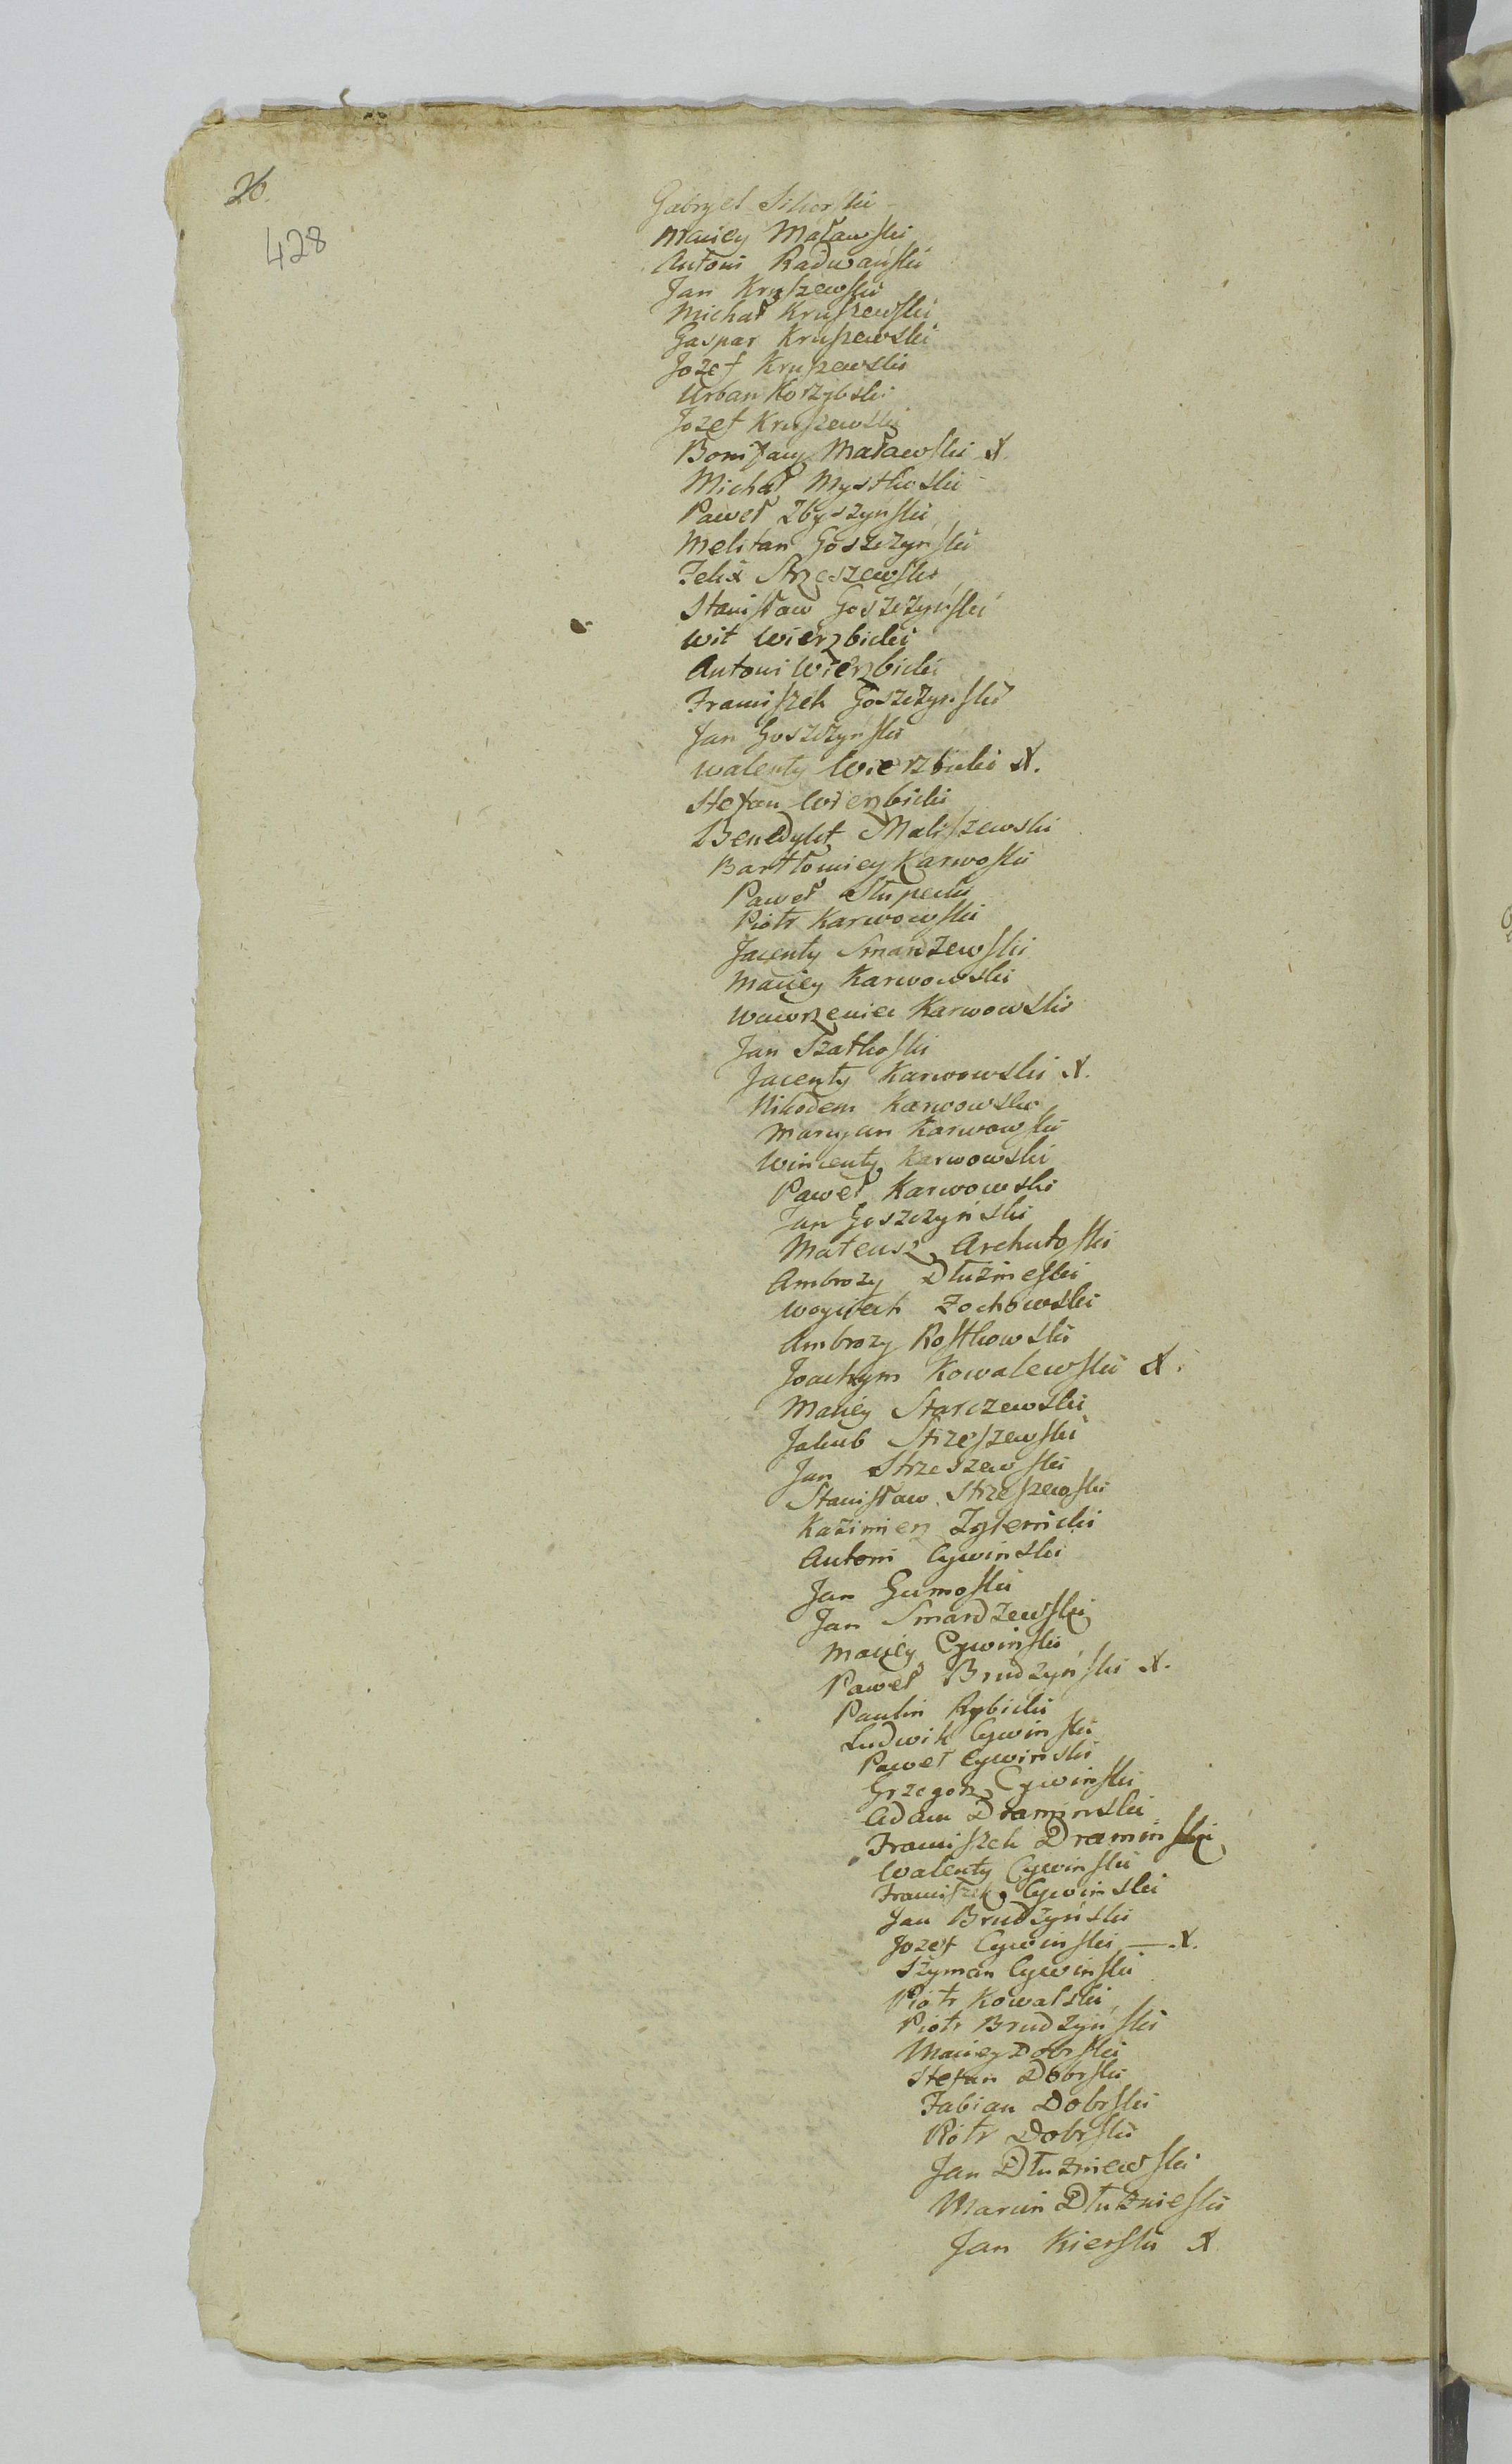 26.
428
Gabryel Sikorski
Maciey Matawski
Antoni Radwański
Jan Kruszewski
Michał Kruszewski
Gaspar Kruszewski
Jozef Kruszewski
Urban Korzybski
Jozef Kruszewski
Bonifacy Matawski X.
Michał Mystkoski
Paweł Zbyszyński
Melitan Goszczyński
Felix Strzeszewski
Stanisław Goszczyński
Wit Wierzbicki
Antoni Wierzbicki
Franciszek Goszczyński
Jan Goszczyński
Walenty Wierzbicki X.
Stefan Wierzbicki
Benedykt Maliszewski
Bartłomiey Karwoski
Paweł Słupecki
Piotr Karwowski
Jacenty Smardzewski
Maciey Karwowski
Wawrzeniec Karwowski
Jan Szatkoski
Jacenty Karwowski X.
Nikodem Karwowski
Maryan Karwowski
Wincenty Karwowski
Paweł Karwowski
Jan Goszczyński
Mateusz Archutoski
Ambrozy Dłużnieski
Woyciech Zochowski
Ambrozy Rostkowski
Joachym Kowalewski X.
Maciey Starczewski
Jakub Strzeszewski
Jan Strzeszewski
Stanisław Strzeszewski
Kazimierz Zglenicki
Antoni Cywinski
Jan Gumoski
Jan Smardzewski
Maciey Cywiński
Paweł Brudzyński X.
Paulin Rybicki
Ludwik Cywinski
Paweł Cywiński
Grzegorz Cywiński
Adam Draminski
Franciszek Draminski
Walenty Cywinski
Franciszek Cywinski
Jan Brudzyński
Jozef Cywinski — X.
Szyman Cywinski
Piotr Kowalski
Piotr Brudzyński
Maciey Dobrski
Stefan Dobrski
Fabian Dobrski
Piotr Dobrski
Jan Dłużniewski
Marcin Dłużnieski
Jan Kierski X